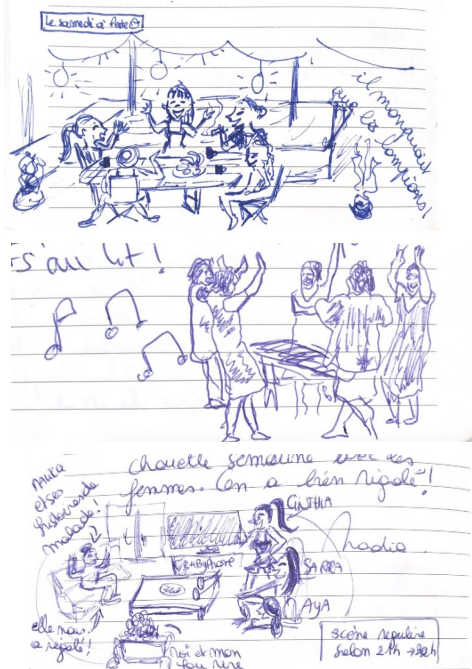 Le samedi a Porte
il manquait
que les lampions!
s'au lit!
chouette semaine avec les
femmes. On a bien rigolé!
et ses
histoires de
malade!
CINTHIA
Nadia
BABYPHONE
SARRA
AYA
elle nous
a régalé!
moi et mon
fou rire
scène régulière
selon 21h → 22h